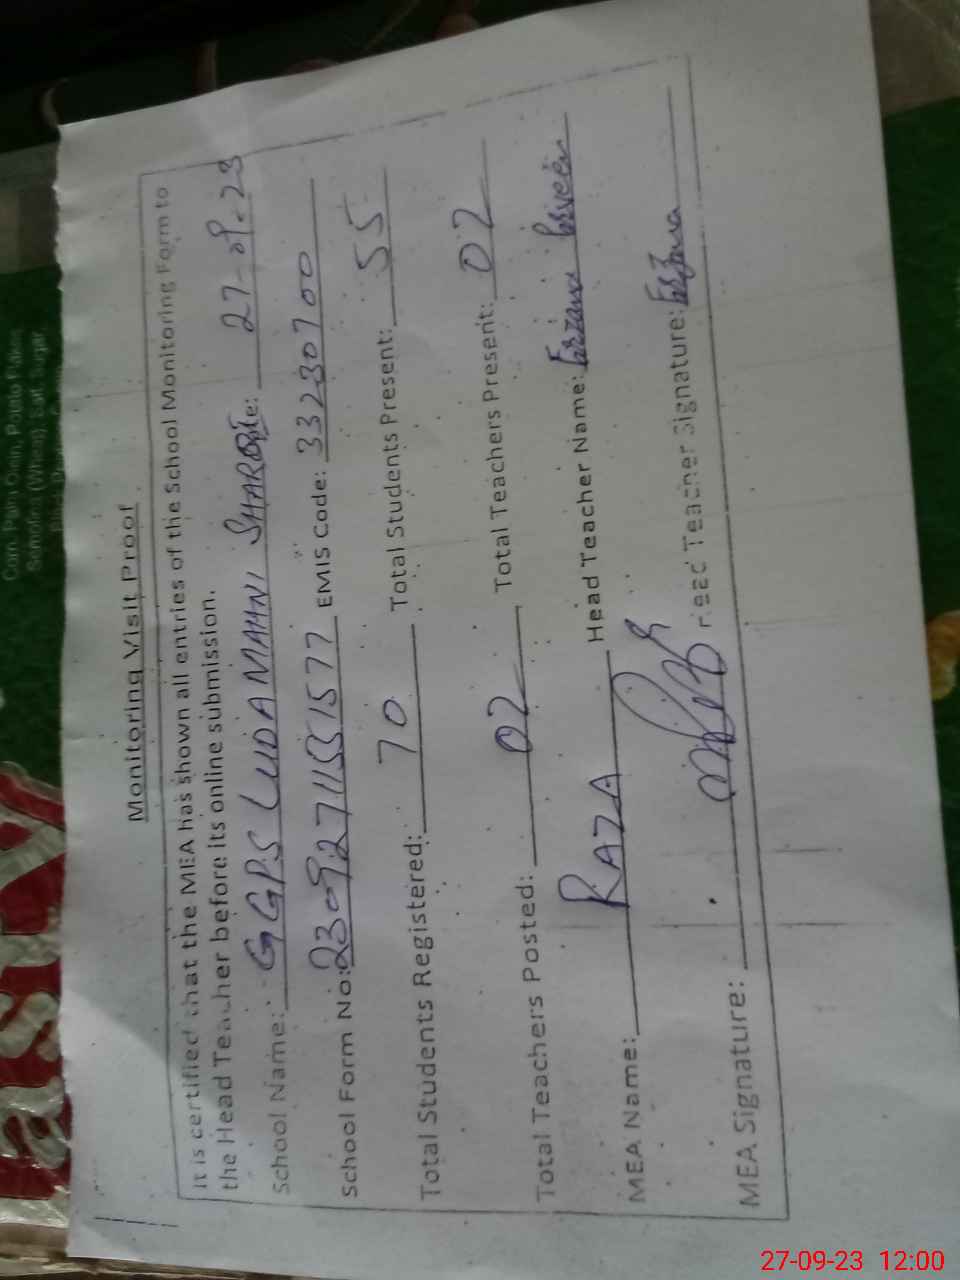 Monitoring Visit Proof
It is certified that the MEA has shown all entries of the School Monitoring Form to
the Head Teacher before its online submission.
School Name: GGPS LUDAMANI SHARQ Date: 27-09-23
School Form No: 23092711551577 EMIS Code: 33230700
Total Students Registered: 70 Total Students Present: 55
Total Teachers Posted: 02 Total Teachers Present: 02
MEA Name: RAZA Head Teacher Name: Farzana Parveen
MEA Signature: Head Teacher Signature: Farzana
27-09-23 12:00